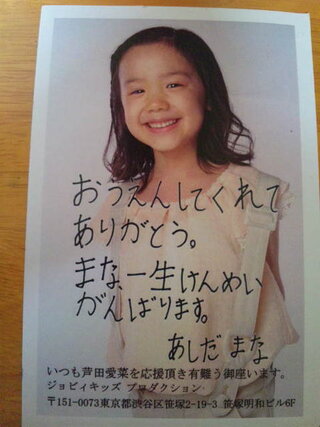 おうえんしてくれて
ありがとう。
まな、一生けんめい
がんばります。
あしだ まな
いつも芦田愛菜を応援頂き有難う御座います。
ジョビィキッズ プロダクション
〒151-0073東京都渋谷区笹塚2-19-3 笹塚明和ビル6F